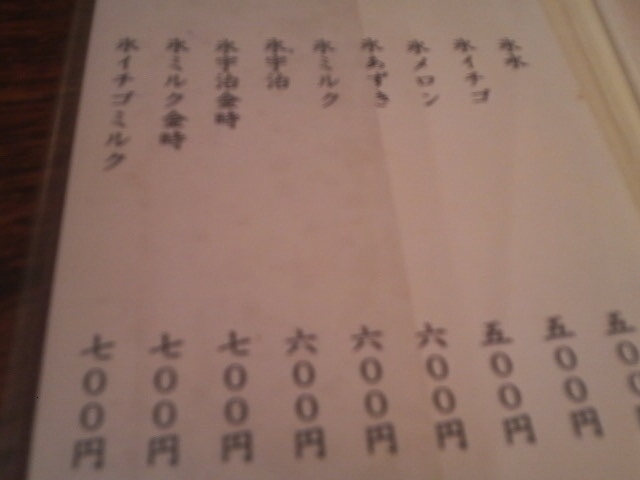 氷水 五〇〇円
氷イチゴ 五〇〇円
氷メロン 五〇〇円
氷あずき 六〇〇円
氷ミルク 六〇〇円
氷宇治 六〇〇円
氷宇治金時 七〇〇円
氷ミルク金時 七〇〇円
氷イチゴミルク 七〇〇円